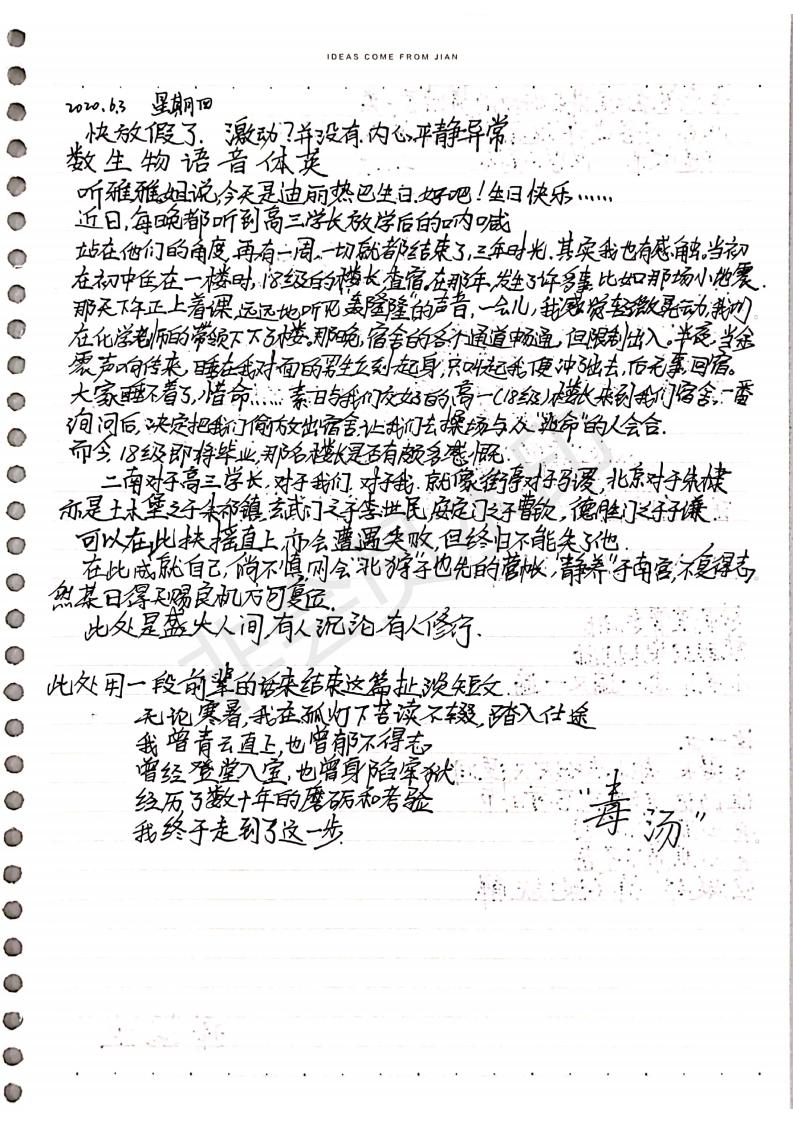 IDEAS COME FROM JIAN
2020.6.3 星期四
快放假了. 激动?并没有.内心平静异常.
数生物语音体英
听雅雅姐说,今天是迪丽热巴生日.好吧!生日快乐……
近日,每晚都听到高三学长放学后的呐喊
站在他们的角度,再有一周,一切就都结束了,三年时光.其实我也有感触.当初
在初中住在一楼时,18级的楼长查宿.在那年,发生了许多事.比如那场小地震.
那天下午正上着课,远远地听见"轰隆隆"的声音,一会儿,我感觉轻微晃动,我们
在化学老师的带领下下了楼.那晚,宿舍的各个通道畅通,但限制出入.半夜,当余
震声响传来,睡在我对面的男生立刻起身,只叫起我便冲了出去,后无事回宿.
大家睡不着了,惜命……素日与我们交好的高一(18级)楼长来到我们宿舍,一番
询问后,决定把我们偷放出宿舍.让我们去操场与众"逃命"的人会合.
而今,18级即将毕业,那名楼长是否有颇多感慨.
二南对于高三学长,对于我们,对于我,就像街亭对于马谡,北京对于朱棣
亦是土木堡之于朱祁镇,玄武门之于李世民,安定门之于曹钦,德胜门之于于谦
可以在此扶摇直上,亦会遭遇失败,但终归不能失了他.
在此成就自己,倘不慎,则会"北狩"于也先的营帐,"静养"于南宫,不复得志,
然某日得天赐良机方可复位.
此处是盛大人间,有人沉沦,有人修行.
非会员水印
此处用一段前辈的话来结束这篇扯淡短文
无论寒暑,我在孤灯下苦读不辍,踏入仕途
我曾青云直上,也曾郁不得志
曾经登堂入室,也曾身陷牢狱
经历了数十年的磨砺和考验
我终于走到了这一步.
"毒汤"